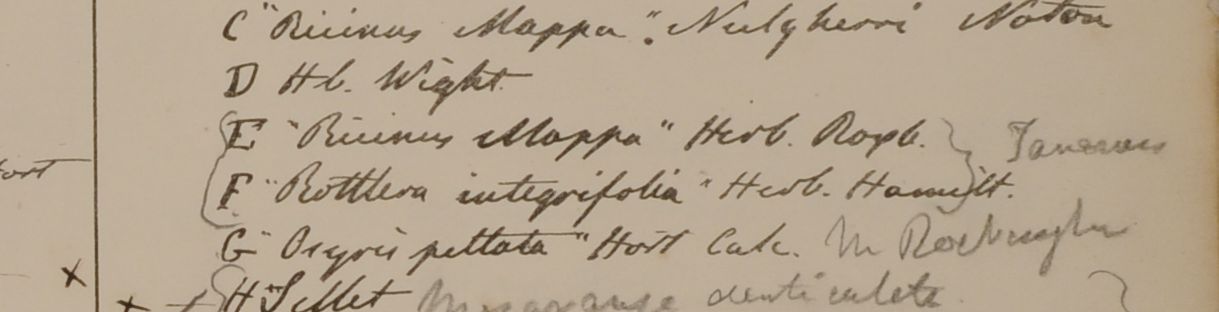 C "Ricinus Mappa". Neelgherri Noton
D Hb. Wight.
E "Ricinus Mappa" Herb. Roxb.
F "Rottlera integrifolia" Herb. Hamilt.
G "Osyris peltata" Hort Calc. M Roxburghii
H Sillet Macaranga denticulata